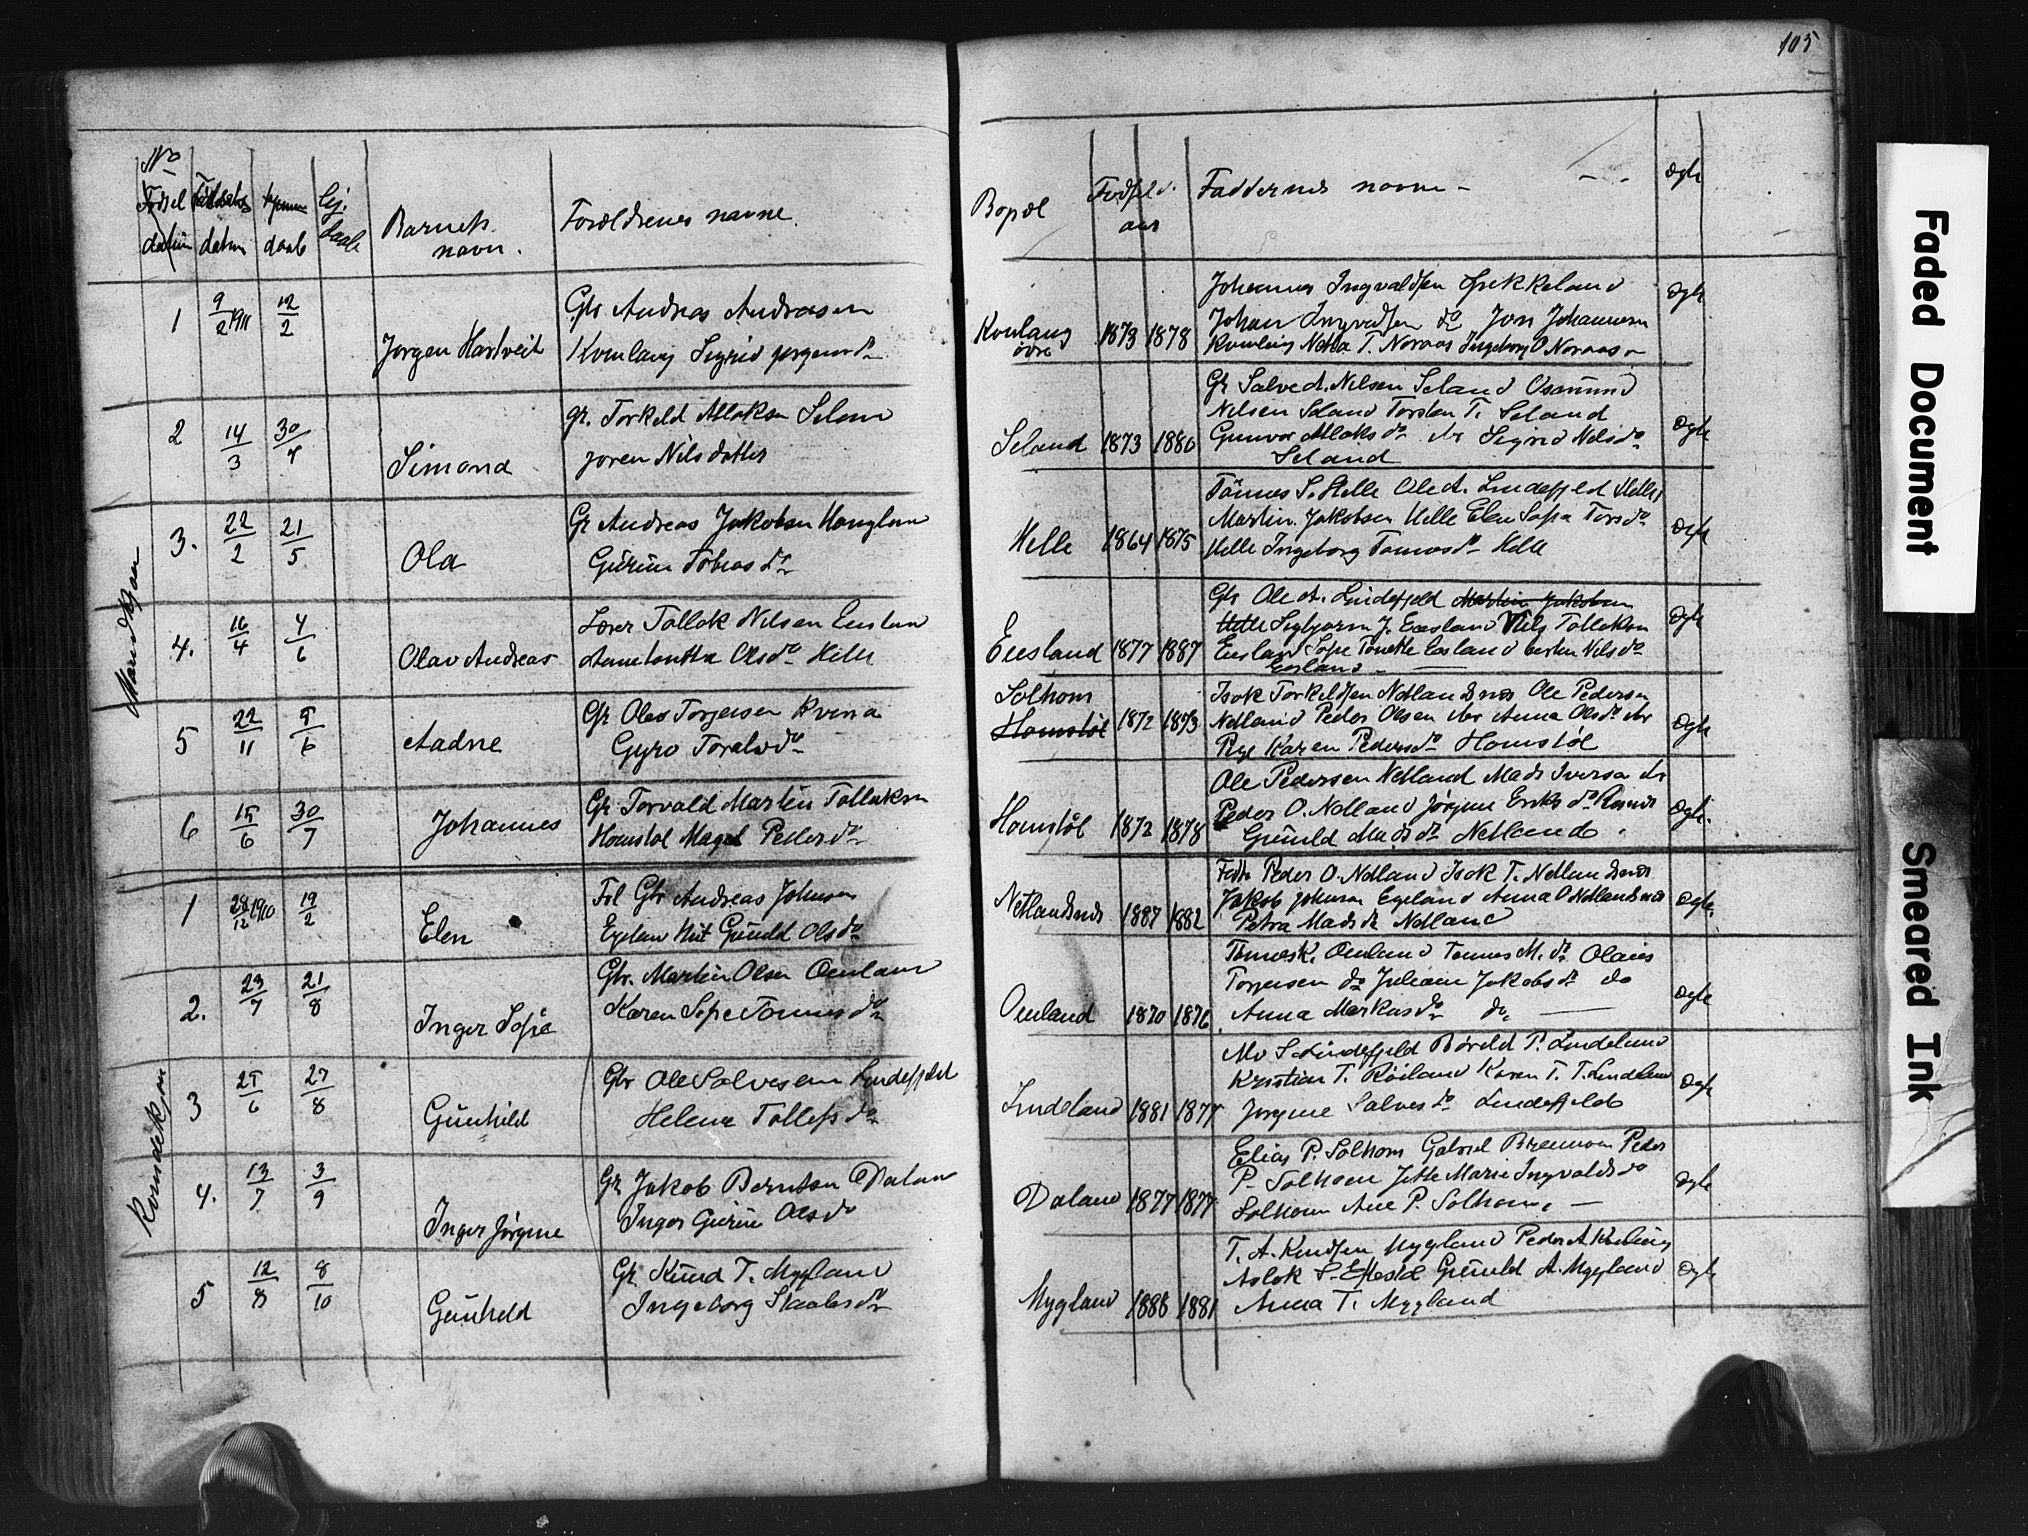 105
No
Fødsel datum
Fødsels datum
Kjem daab
Kj. daab
Barnets navn.
Forældrenes navne.
Bopæl
Fødsels aar
Faddernes navne -
ægte
Mandkjøn
1 9/2 1911 12/2 Jørgen Hartveit
Gbr Andreas Andreasen
Kvinlaug Sigrid Jørgensdr
Kvinlaug øvre 1873 1878
Johannes Ingvaldsen
Johan Ingvaldsen do Jon Johannesen
T. Noraas Ingeborg O Noraas
ægte
2 14/3 30/4 Simond
gr. Torkeld Atlaksen Seland
Joren Nilsdatter
Seland 1873 1880
Gr Salve A. Nilsen Seland Osmund
Nilsen Seland Torsten T. Seland
Gunvor Atlaksdr Sigrid Nilsdr
Seland
ægte
3. 22/2 21/5 Ola
Gr Andreas Jakobsen
Gurine Tobiasdr
Helle 1864 1875
Tønnes S. Helle Ole A. Lindefjeld Helle
Martin Jakobsen Helle Elen Sofia
Helle Ingeborg Tønnesdr Helle
ægte
4. 16/4 4/6 Olav Andreas
Lærer Tollak Nilsen Eiesland
Olsdr Helle
Eiesland 1877 1887
Gbr Ole A. Lindefjeld Martin Jakobsen
Helle Sigbjørn J. Eiesland Nils Tollaksen
Eiesland Sofie Tonette Eiesland Nilsdr
Eiesland
ægte
5 22/11 5/6 Aadne
Gr Olav Torjersen Kvina
Gyro Toralsdr
Solhom
Homstøl 1872 1873
Isak Torkeldsen Netlandsnes Ole Pedersen
Netland Peder Olsen Anna Olsdr
Karen Pedersdr Homstøl
ægte
6 15/6 30/7 Johannes
Gr Torvald Martin Tollaksen
Homstøl Magel Pedersdr
Homstøl 1872 1878
Ole Pedersen Netland Mads Iversen
Peder O. Netland Jørgine Eriksdr
Gunild Madsdr Netland
ægte.
Kvindekjøn
1 28/12 1910 19/2 Elen
Fol Gbr Andreas Johnsen
Egeland Gunild Olsdr
Netlandsnes 1887 1882
Peder O. Netland Isak T. Netlandsnes
Jakob Johnsen Egeland Anna O Netlandsnes
Petra Madsdr Netland
ægte.
2. 23/7 21/8 Inger Sofie
Gbr. Martin Olsen Omland
Karen Sofie Tønnesdr
Omland 1870 1876
Tønnes K. Omland Tønnes M. do Olaus
Torjersen do Juliane Jakobsdr do
Anna Markusdr do
ægte
3 25/6 27/8 Gunhild
Gbr Ole Salvesen Lindefjeld
Helena Tollefsdr
Lindeland 1881 1877
S. Lindefjeld P. Lindeland
Kristian T. Røiland Karen T. T. Lindeland
Jørgine Salvesdr Lindefjeld
ægte
4. 13/7 3/9 Inger Jørgine
Gr Jakob Berntsen Daland
Inger Gurine Olsdr
Daland 1877 1877
Elias P. Solhom Gabriel Peder
P. Solhom Jette Marie Ingvaldsdr
Solhom Ane P. Solhom.
ægte
5 12/8 8/10 Gunhild
Gr Knud T. Mygland
Ingeborg
Mygland 1888 1881
T. A. Knudsen Mygland Peder A
Aslak S. Eftestøl Gunild A. Mygland
Anna T. Mygland
ægte
Faded Document
Smeared Ink